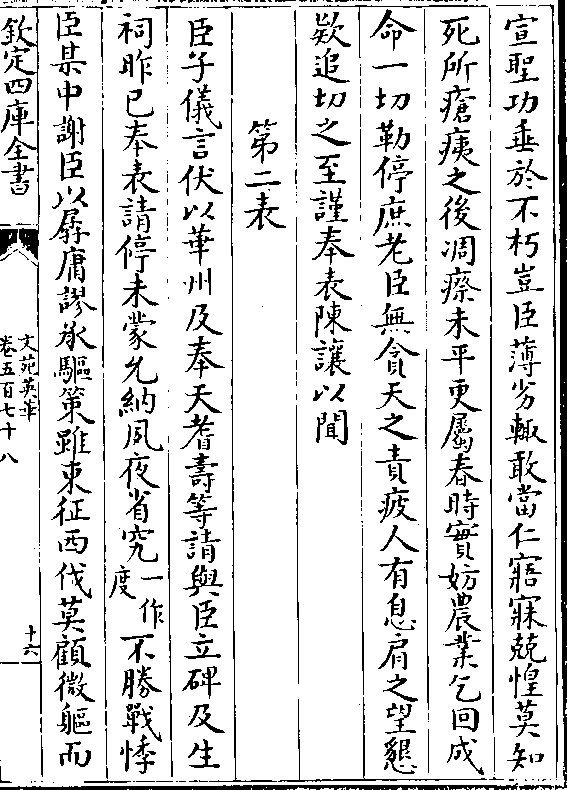 宣聖功垂於不朽豈臣薄劣輙敢當仁寤寐兢惶莫知
死所瘡痍之後凋瘵未平更屬春時實妨農業乞回成
命一切勒停庶老臣無貪天之責疲人有息肩之望懇
欵追切之至謹奉表陳讓以聞
第二表
臣子儀言伏以華州及奉天耆壽等請與臣立碑及生
祠昨已奉表請停未蒙允納夙夜省究一作度不勝戰悸
臣某中謝臣以孱庸謬承驅策雖東征西伐莫顧微軀而
欽定四庫全書
文苑英華
卷五百七十八
十六